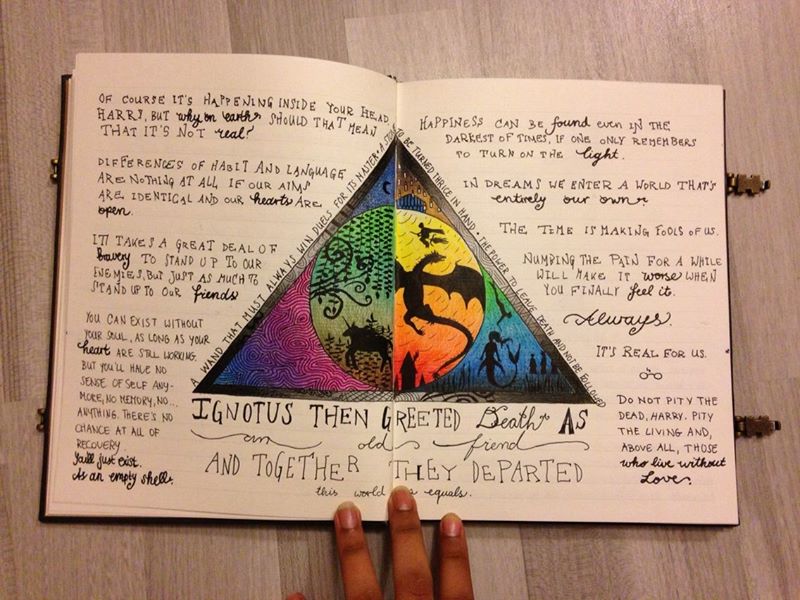 OF COURSE IT'S HAPPENING INSIDE YOUR HEAD,
HARRY, BUT why on earth SHOULD THAT MEAN
THAT IT'S NOT real?
DIFFERENCES OF HABIT AND LANGUAGE
ARE NOTHING AT ALL IF OUR AIMS
ARE IDENTICAL AND OUR hearts ARE
open.
IT TAKES A GREAT DEAL OF
bravery TO STAND UP TO OUR
ENEMIES, BUT JUST AS MUCH TO
STAND UP TO OUR friends
YOU CAN EXIST WITHOUT
YOUR SOUL, AS LONG AS YOUR
heart ARE STILL WORKING.
BUT YOU'LL HAVE NO
SENSE OF SELF ANY-
MORE, NO MEMORY, NO...
ANYTHING. THERE'S NO
CHANCE AT ALL OF
RECOVERY
You'll just exist.
As an empty shell.
A WAND THAT MUST ALWAYS WIN DUELS FOR ITS MASTER • A STONE TO BE TURNED THRICE IN HAND • THE POWER TO LEAVE DEATH AND NOT BE FOLLOWED
HAPPINESS CAN BE found even IN THE
DARKEST OF TIMES, IF ONE ONLY REMEMBERS
TO TURN ON THE light.
IN DREAMS WE ENTER A WORLD THAT'S
entirely our own
THE TIME IS MAKING FOOLS OF US.
NUMBING THE PAIN FOR A WHILE
WILL MAKE IT worse WHEN
YOU FINALLY feel it.
Always.
IT'S REAL FOR US.
DO NOT PITY THE
DEAD, HARRY. PITY
THE LIVING AND,
ABOVE ALL, THOSE
who live without
Love.
IGNOTUS THEN GREETED Death AS
an old friend
AND TOGETHER THEY DEPARTED
this world as equals.